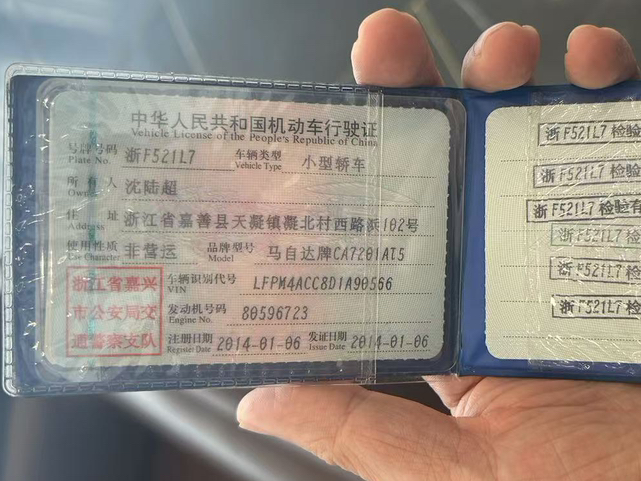 中华人民共和国机动车行驶证
Vehicle License of the People's Republic of China
号牌号码 浙F521L7 车辆类型 小型轿车
Plate No. Vehicle Type
所有人 沈陆超
Owner
住址 浙江省嘉善县天凝镇凝北村西路浜102号
Address
使用性质 非营运 品牌型号 马自达牌CA7201AT5
Use Character Model
浙江省嘉兴
市公安局交
通警察支队
车辆识别代号 LFPM4ACC8D1A90566
VIN
发动机号码 80596723
Engine No.
注册日期 2014-01-06 发证日期 2014-01-06
Register Date Issue Date
浙F521L7 检验
浙F521L7 检验
浙F521L7 检验有
浙F521L7 检验
浙F521L7 检验
浙F521L7 检验